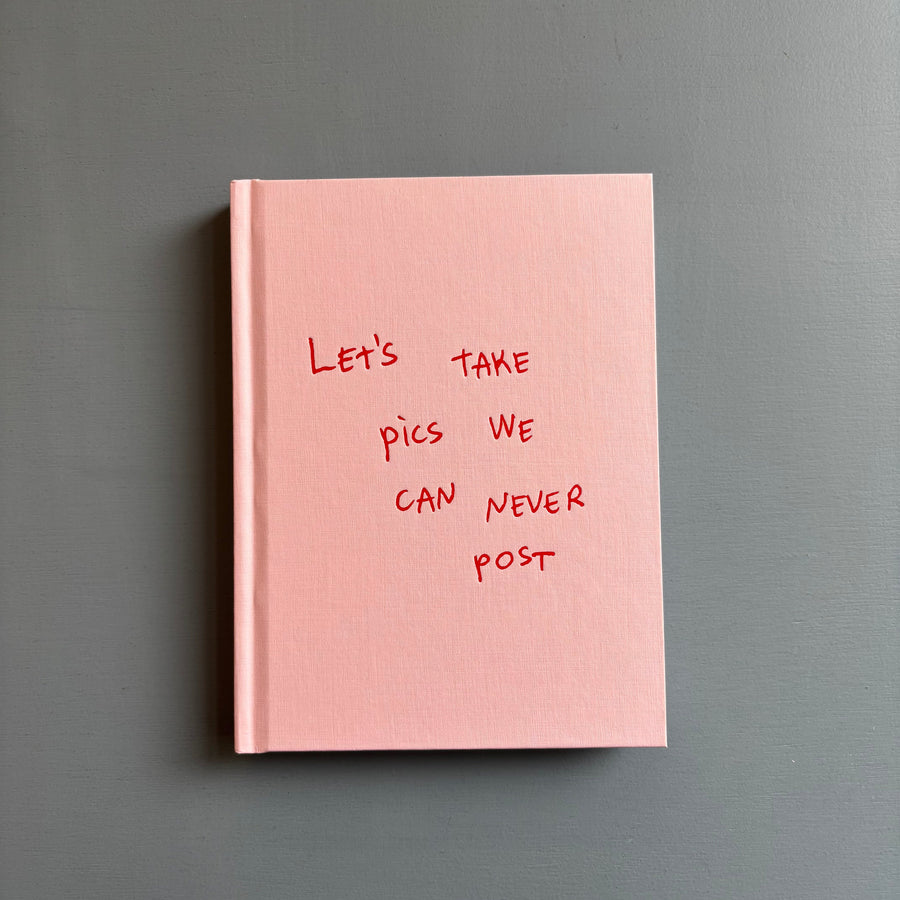 LET'S TAKE
pics WE
CAN NEVER
POST